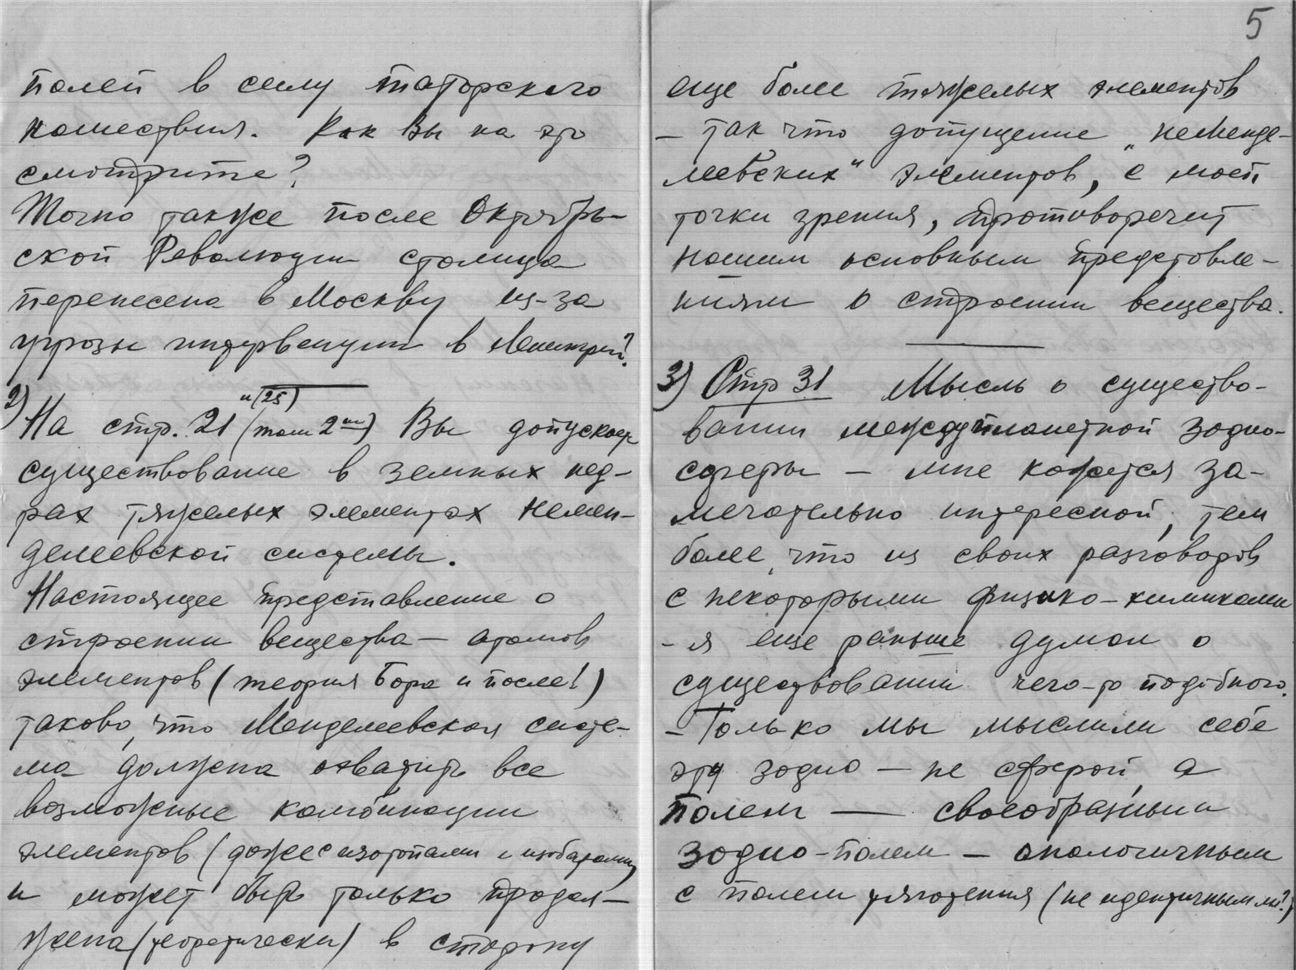 полей в силу татарского
нашествия. Как Вы на это
смотрите?
Точно также после Октябрь-
ской Революции столица
перенесена в Москву из-за
угрозы интервенции в Ленингр.?
2) На стр. 21 и (25) (том 2ой) Вы допускаете
существование в земных нед-
рах тяжелых элементах немен-
делеевской системы.
Настоящее представление о
строении вещества — атомов
элементов (теория Бора и после!)
таково, что Менделеевская систе-
ма должна охватить все
возможные комбинации
элементов (даже с изотопами и изобарами)
и может быть только продол-
жена (теоретически) в сторону
5
еще более тяжелых элементов
— так что допущение „неменде-
леевских" элементов, с моей
точки зрения, противоречит
нашим основным представле-
ниям о строении вещества.
3) Стр 31 Мысль о существо-
вании междупланетной зодио-
сферы — мне кажется за-
мечательно интересной, тем
более, что из своих разговоров
с некоторыми физико-химиками
- я еще раньше думал о
существовании чего-то подобного.
- Только мы мыслили себе
эту зодио — не сферой, а
полем — своеобразным
зодио-полем — аналогичным
с полем тяготения (не идентичным ли?)